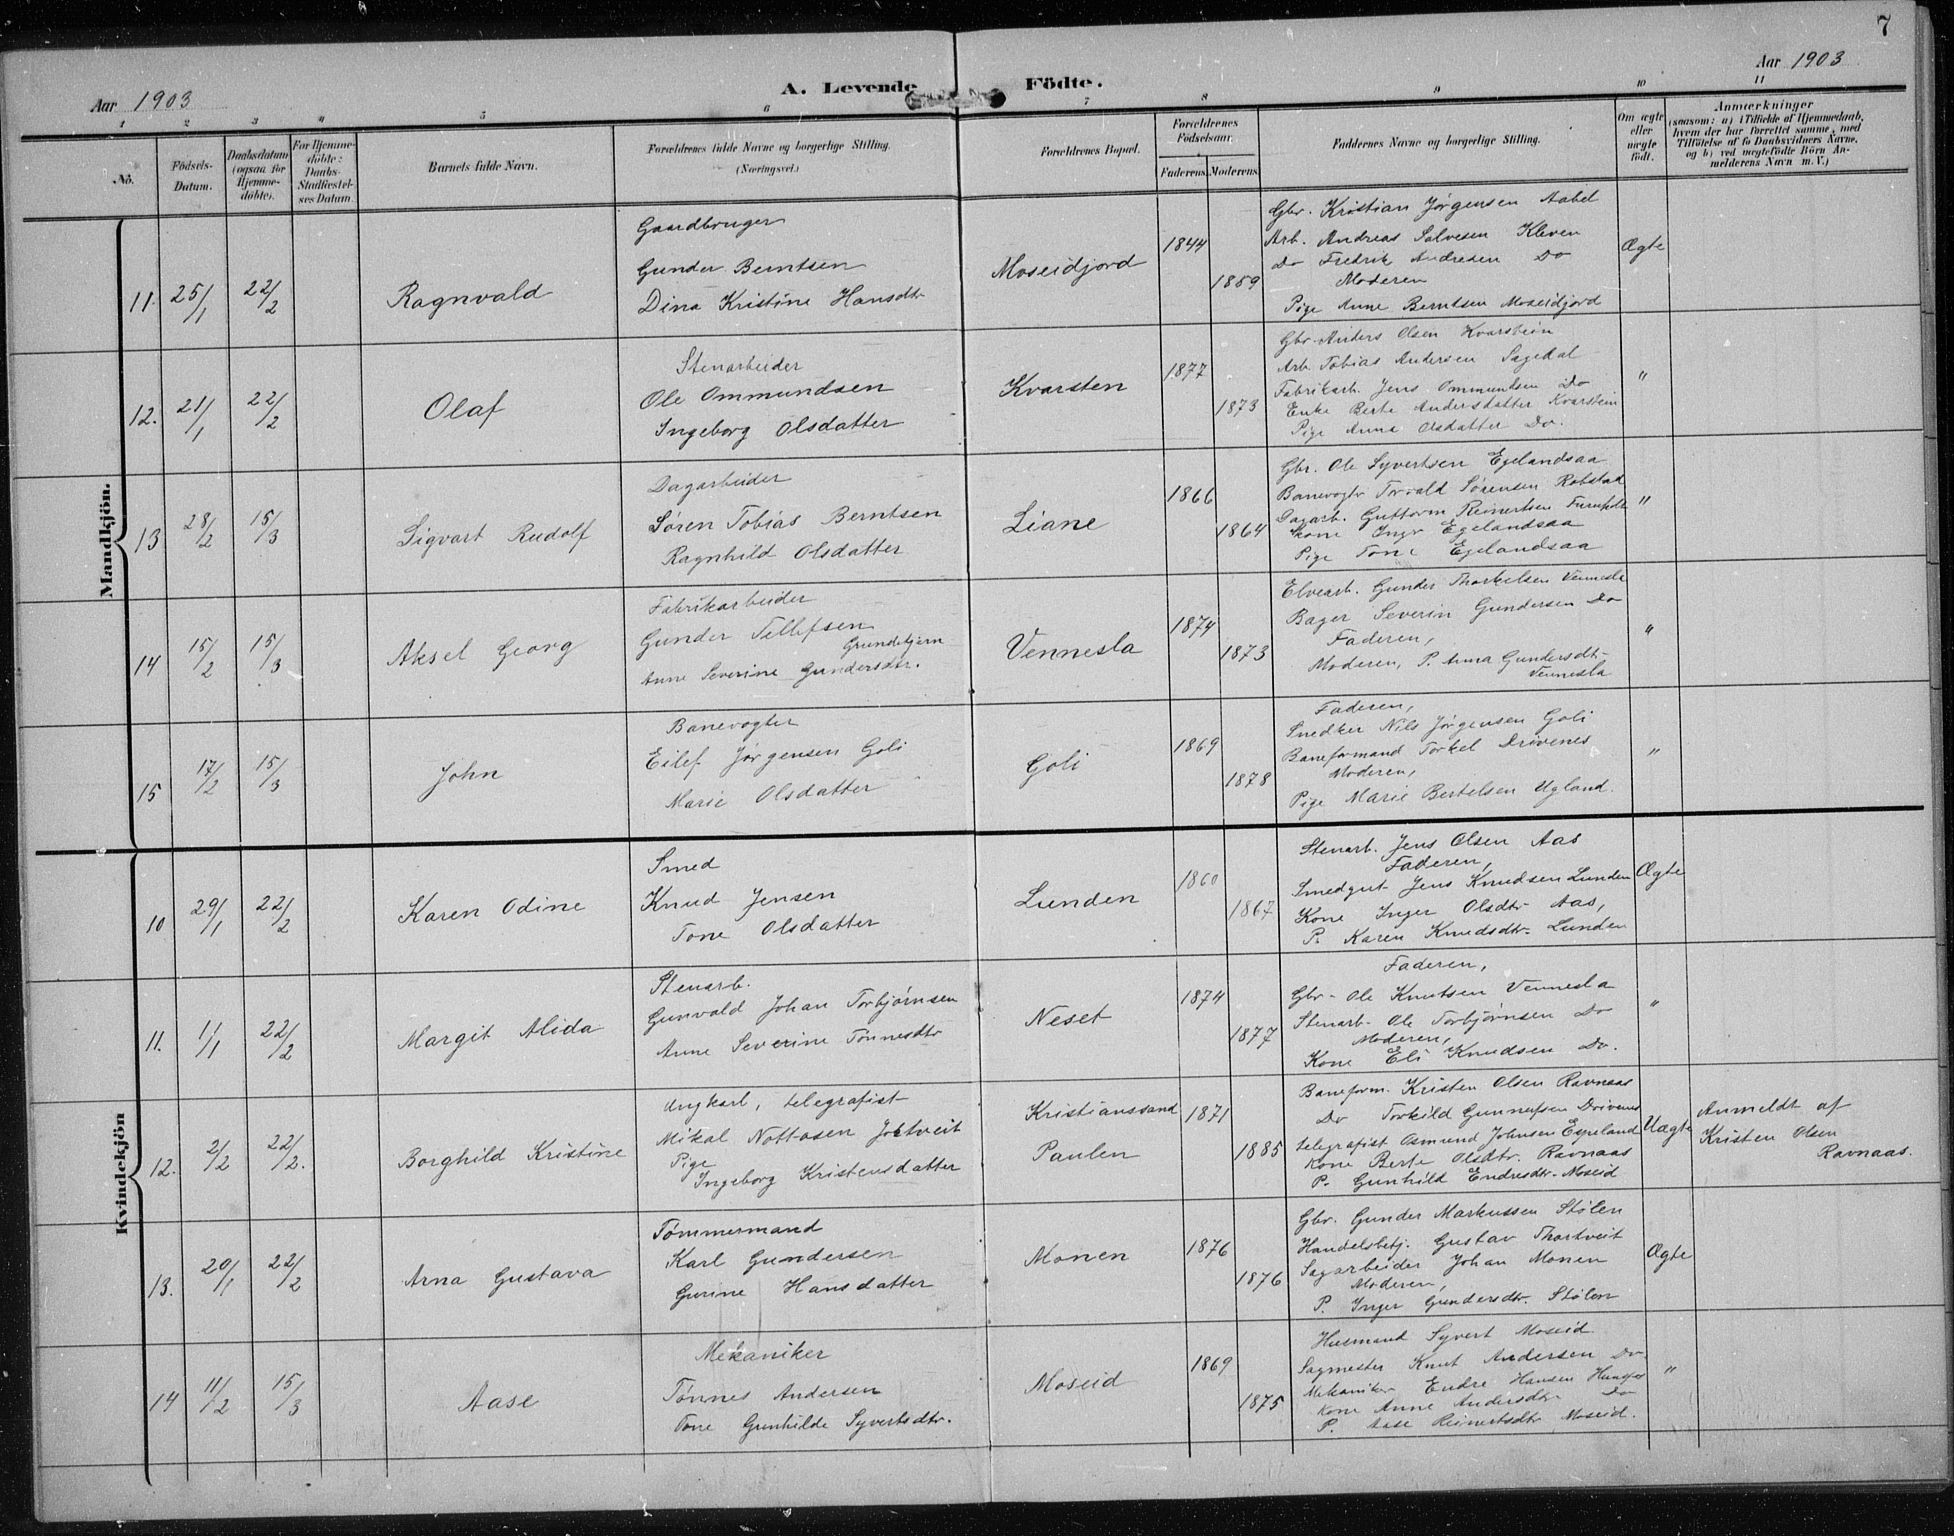 7
Aar 1903
A. Levende Födte.
Aar 1903
1 2 3 4 5 6 7 8 9 10 11
No.
Födsels-Datum.
Daabsdatum (ogsaa for Hjemme-döbte).
For Hjemme-döbte: Daabs-Stadfæstel-ses Datum.
Barnets fulde Navn.
Forældrenes fulde Navne og borgerlige Stilling.
(Næringsvei.)
Forældrenes Bopæl.
Forældrenes Födselsaar.
Faderens. Moderens.
Faddernes Navne og borgerlige Stilling.
Om ægte eller uægte födt.
Anmærkninger
(saasom: a) i Tilfælde af Hjemmedaab,
hvem der har forrettet samme, med
Tilföielse af to Daabsvidners Navne,
og b) ved uægtefödte Börn An-
melderens Navn m. V.)
Mandkjön.
11. 25/1 22/2 Ragnvald
Gaardbruger
Gunder Berntsen
Dina Kristine Hansdtr
Moseidjord 1844 1859
Gbr. Kristian Jørgensen Aabel
Arb. Andreas Salvesen Kleven
Do Fredrik Andresen Do
Moderen
Pige Anne Berntsen Moseidjord
Ægte
12. 21/1 22/2 Olaf
Stenarbeider
Ole Ommundsen
Ingeborg Olsdatter
Kvarsten 1877 1873
Gbr. Anders Olsen Kvarstein
Arb. Tobias Andersen Sagedal
Fabrikarb. Jens Ommundsen Do
Enke Berte Andersdatter Kvarstein
Pige Anna Olsdatter Do.
"
13 28/2 15/3 Sigvart Rudolf
Dagarbeider
Søren Tobias Berntsen
Ragnhild Olsdatter
Liane 1866 1864
Gbr. Ole Syvertsen Egelandsaa
Banevogtr Torvald Sørensen Robstad
Dagarb. Guttorm Reinertsen
Kone Ingr Egelandsaa
Pige Tone Egelandsaa
"
14 15/2 15/3 Aksel Georg
Fabrikarbeider
Gunder Tellefsen
Grundetjern
Anne Severine Gundersdtr.
Vennesla 1874 1873
Elvearb. Gunder Thorkelsen Vennesla
Bager Severin Gundersen Do
Faderen,
Moderen, P. Anna Gundersdt-
Vennesla
"
15 17/2 15/3 John
Banevogter
Eilef Jørgensen Goli
Marie Olsdatter
Goli 1869 1878
Faderen,
Snedker Nils Jørgensen Goli
Baneformand Torkel Drivenes
Moderen,
Pige Marie Bertelsen Ugland.
"
Kvindekjön
10 29/1 22/2 Karen Odine
Smed
Knud Jensen
Tone Olsdatter
Lunden 1860 1867
Stenarb. Jens Olsen Aas
Faderen,
Smedgut Jens Knudsen Lunden
Kone Inger Olsdtr Aas,
P. Karen Knudsdtr. Lunden
Ægte
11. 1/1 22/2 Margit Alida
Stenarb.
Gunvald Johan Torbjørnsen
Anne Severine Tønnesdtr
Neset 1874 1877
Faderen,
Gbr- Ole Knutsen Vennesla
Stenarb- Ole Torbjørnsen Do
Moderen,
Kone Eli Knudsen Do.
"
12. 2/2 22/2. Borghild Kristine
Ungkarl, telegrafist
Mikal Nottosen Jortveit
Pige
Ingeborg Kristensdatter
Kristianssand
Paulen 1871 1885
Baneform. Kristen Olsen Ravnaas
Do Torkild Gunnufsen Drivenes
telegrafist Osmund Johnsen Egeland
Kone Berte Olsdtr. Ravnaas
P. Gunhild Endresdtr. Moseid
Uægte
Anmeldt af
Kristen Olsen
Ravnaas.
13. 20/1 22/2 Arna Gustava
Tømmermand
Karl Gundersen
Gurine Hansdatter
Monen 1876 1876
Gbr. Gunder Markussen Stølen
Handelsbetj. Gustav Thortveit
Sagarbeider Johan Monen
Moderen,
P. Inger Gundersdtr. Stølen
Ægte
14 11/2 15/3 Aase
Mekaniker
Tønnes Andersen
Tone Gunhilde Syvertsdtr.
Moseid 1869 1875
Husmand Syvert Moseid
Sagmester Knut Andersen Do.
Mekaniker Endre Hansen
Kone Anne Andersdtr Do
P. Aase Reinertsdtr Moseid.
"